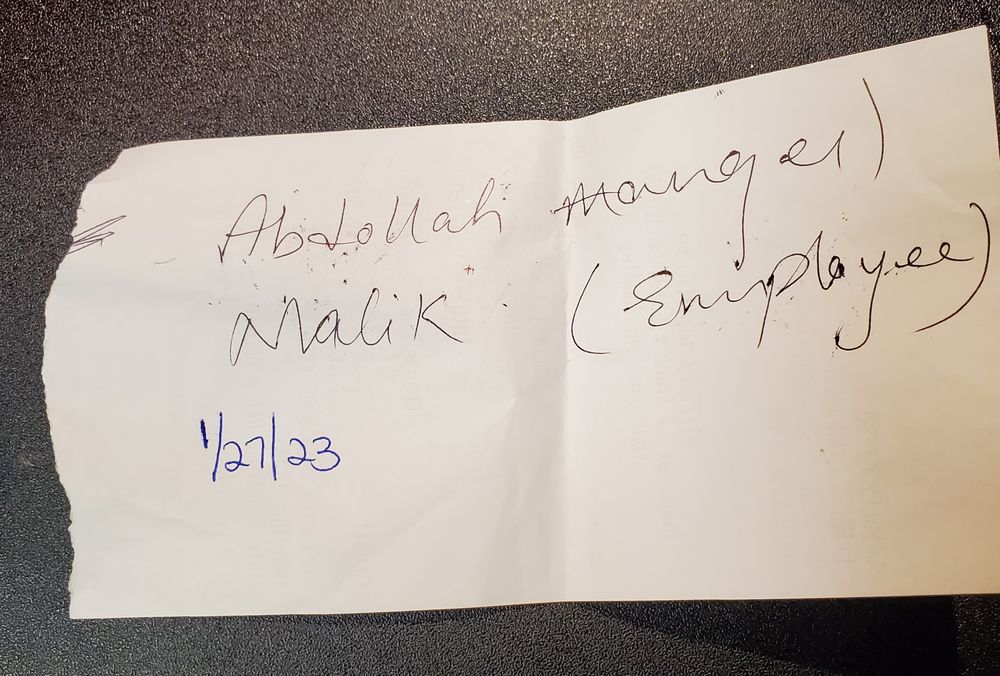 Abdollah manger)
Malik (Employee)
1/27/23